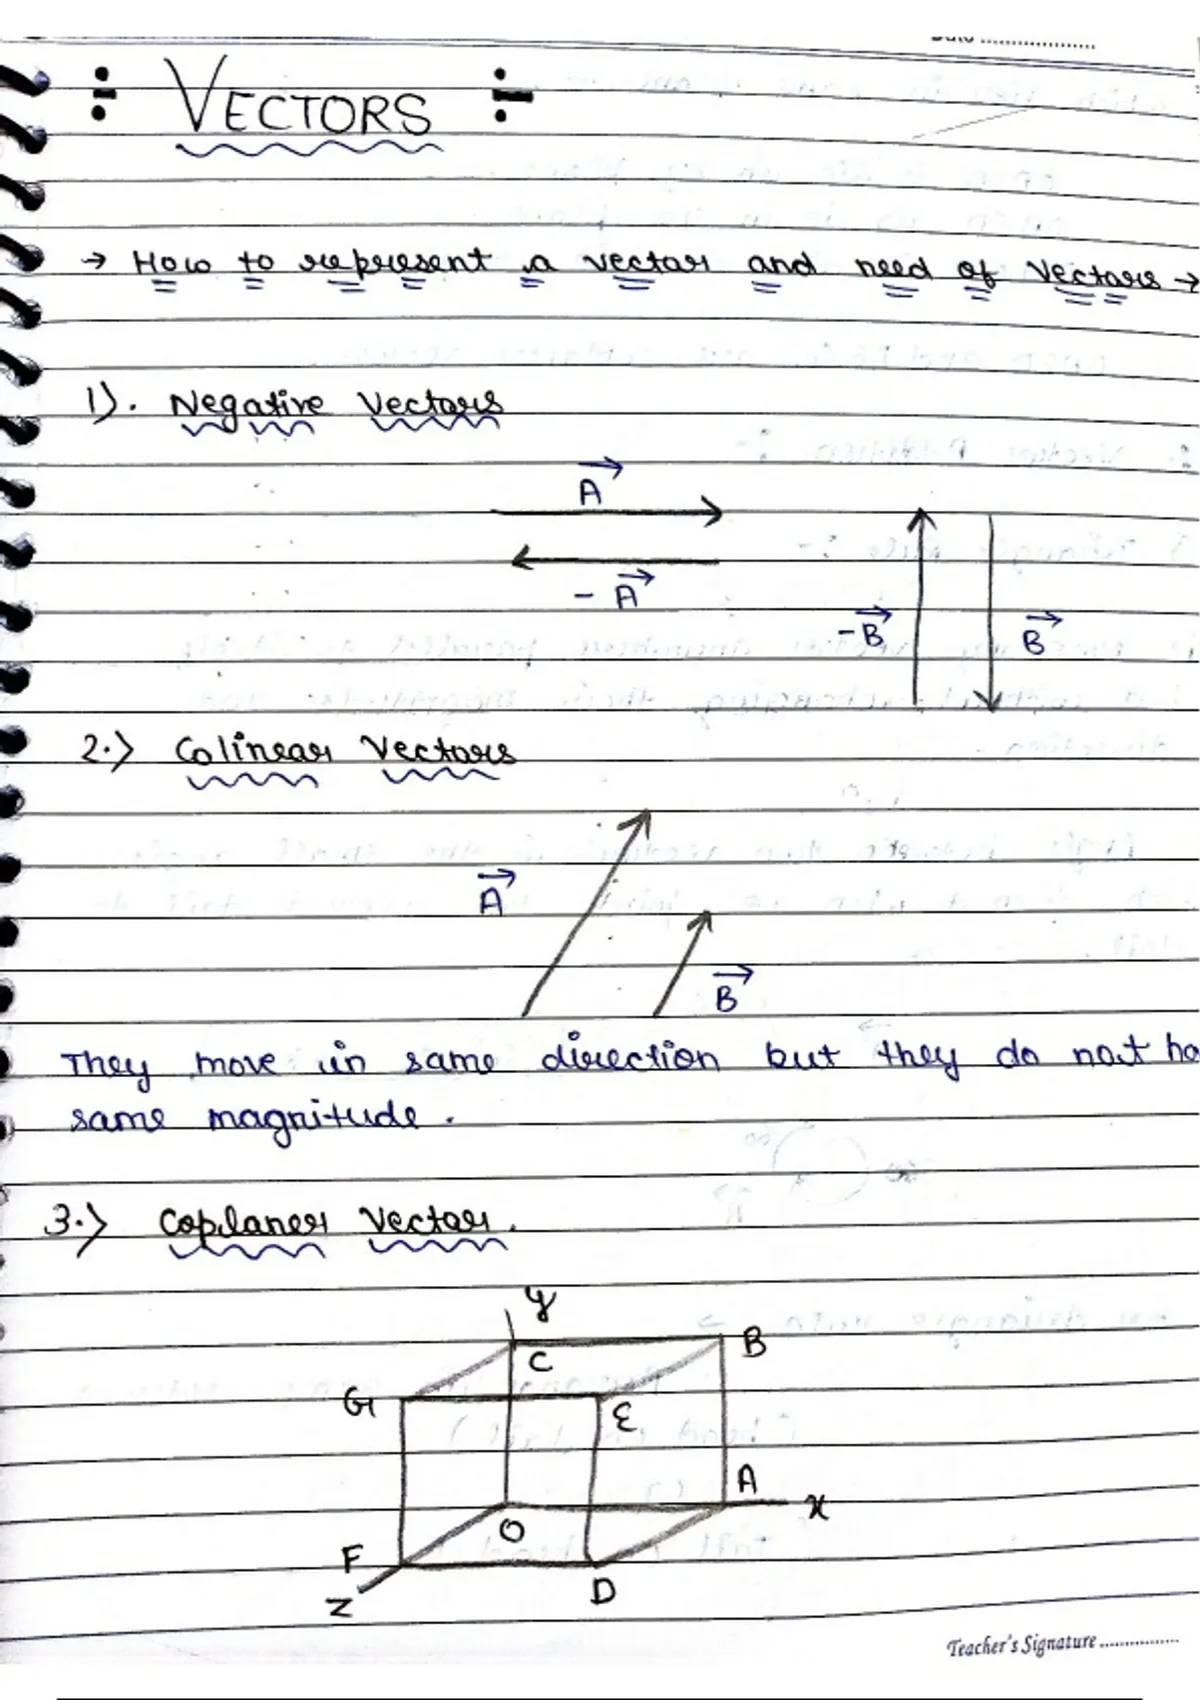 ÷ VECTORS ÷
→ How to represent a vector and need of Vectors →
1). Negative Vectors
A
- A
-B
B
2.) Colinear Vectors
A
B
They move in same direction but they do not ha
same magnitude.
3.) Coplaner Vector.
y
B
C
G
E
A
x
O
F
D
Z
Teacher's Signature ................